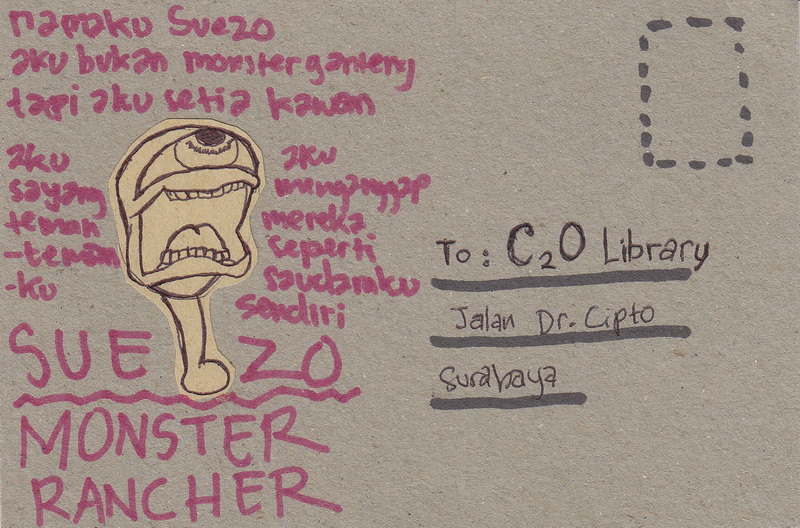 namaku Suezo
aku bukan monster ganteng
tapi aku setia kawan
aku
sayang
teman
-teman
-ku
aku
menganggap
mereka
seperti
saudaraku
sendiri
SUEZO
MONSTER
RANCHER
To: C2O Library
Jalan Dr. Cipto
Surabaya